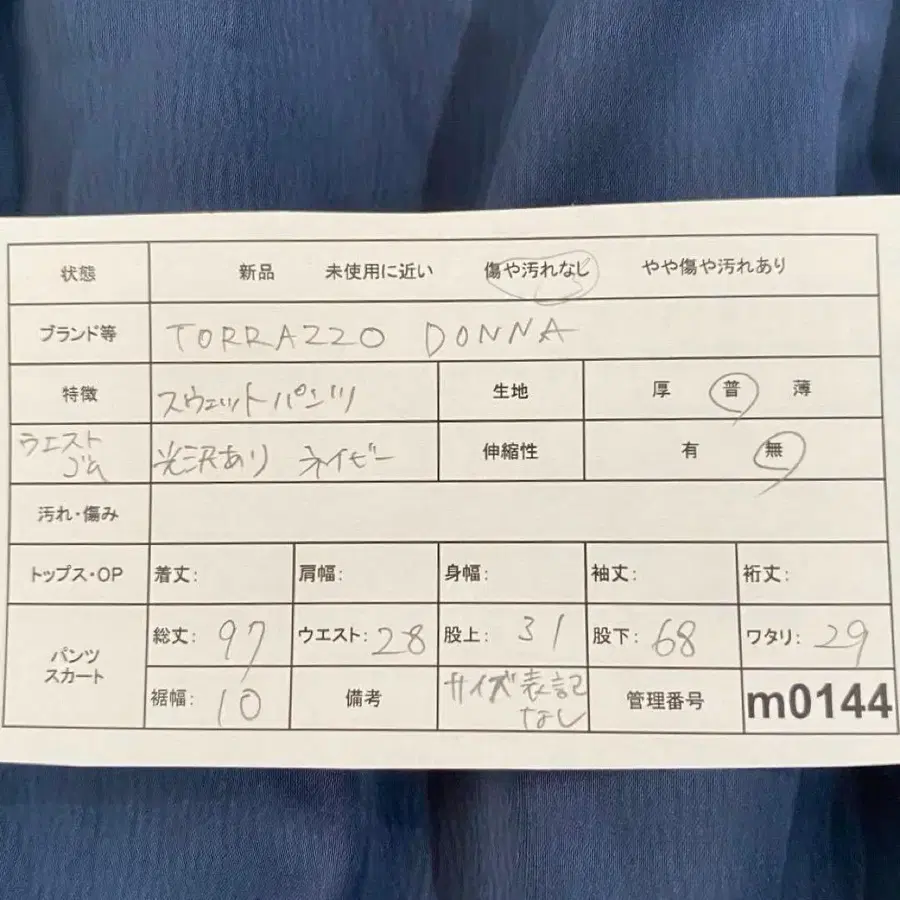 状態 新品 未使用に近い 傷や汚れなし やや傷や汚れあり
ブランド等 TORRAZZO DONNA
特徴 スウェットパンツ 生地 厚 普 薄
ウエスト
ゴム 光沢あり ネイビー 伸縮性 有 無
汚れ・傷み
トップス・OP 着丈: 肩幅: 身幅: 袖丈: 裄丈:
パンツ
スカート
総丈: 97 ウエスト: 28 股上: 31 股下: 68 ワタリ: 29
裾幅: 10 備考 サイズ表記
なし 管理番号 m0144